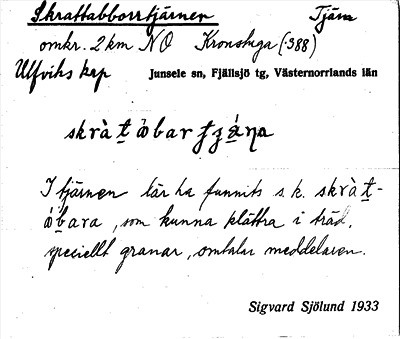 Skrattabborrtjärnen Tjärn
omkr. 2 km NO Kronstuga (:388)
Ulfviks krp Junsele sn, Fjällsjö tg, Västernorrlands län
I tjärnen lär ha funnits s.k. skràt̠-
ǻb̠ara, som kunna klättra i träd,
speciellt granar, omtalar meddelaren.
Sigvard Sjölund 1933